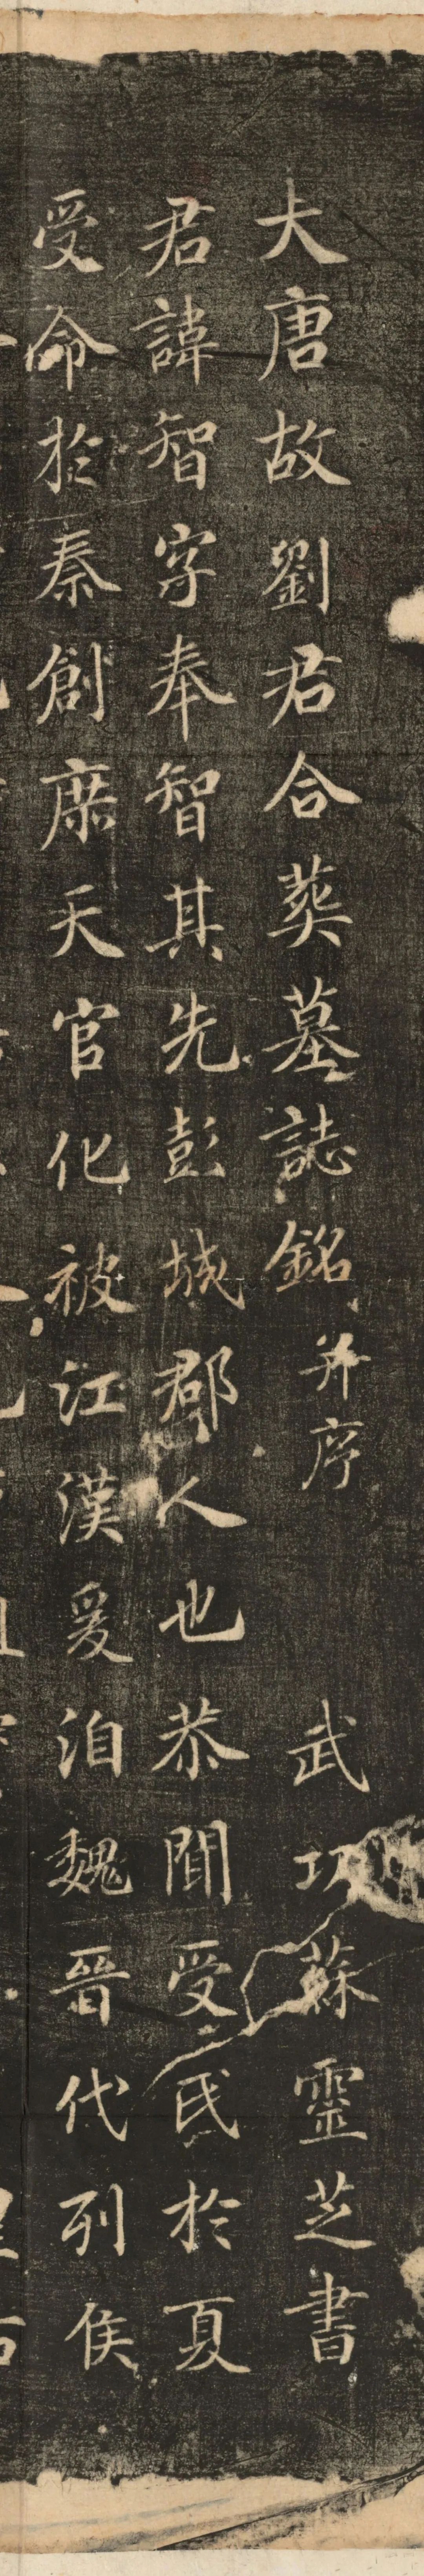 大唐故劉君合葬墓誌銘并序 武功蘇靈芝書
君諱智字奉智其先彭城郡人也恭聞受氏於夏
受命於秦創庶天官化被江漢爰洎魏晉代列侯